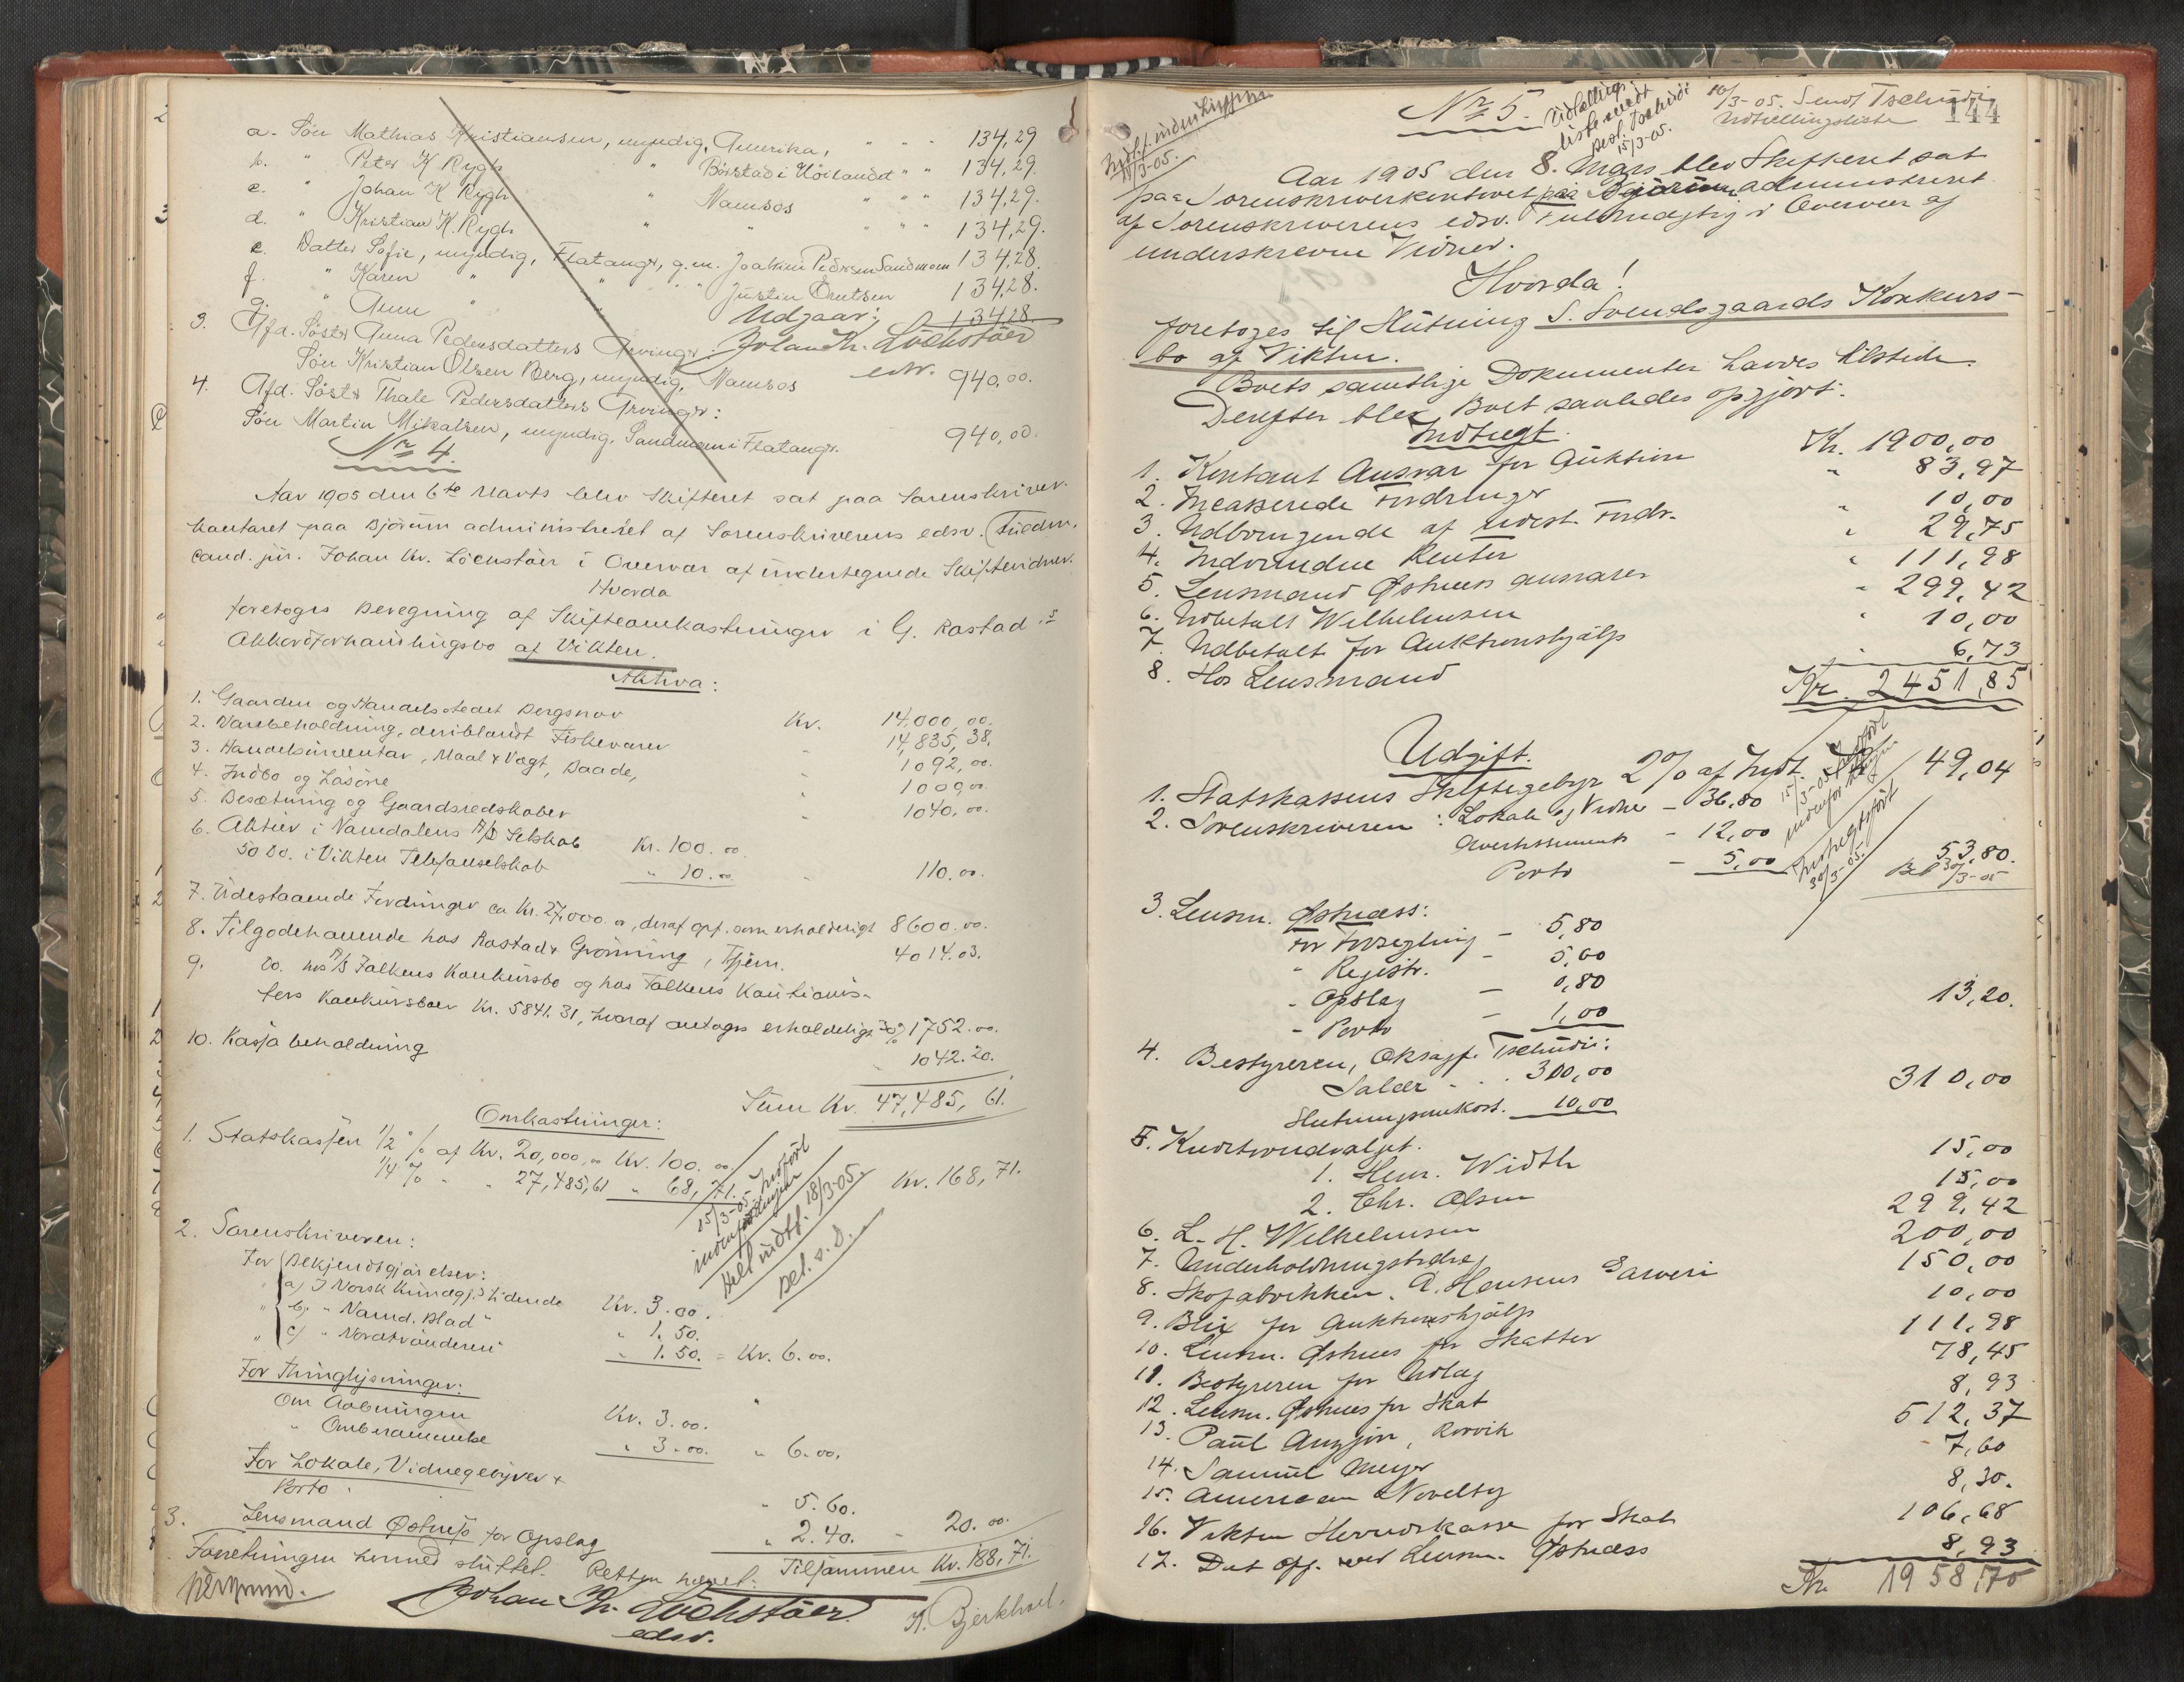 a. Søn Mathias Kristiansen, myndig, Amerika, " " " 134,29
b. " Peter K Rygh " Børstad i Höilandet " " 134,29.
c. " Johan K Rygh " Namsos " " " 134,29.
d. " Kristian K. Rygh " " " " " 134,29.
e. Datter Sofie, myndig, Flatangr, g.m. Joakim Pedersen Sandmoen 134,28.
f. " Karen " " " " Justin Knutsen 134,28.
g. " Anna " Udgaar: 134,28
3. Afd. Søster Anna Pedersdatters Arvinger: Johan Kr. Löchstöer
edsv.
Søn Kristian Olsen Berg, myndig, Namsos 940,00.
4. Afd. Søster Thale Pedersdatters Arvinger:
Søn Martin Mikalsen, myndig, Sandmoen i Flatangr. 940,00.
No 4.
Aar 1905 den 6te Marts blev Skifteret sat paa Sorenskriver-
kontoret paa Bjørum administreret af Sorenskriverens edsv. Fuldm.
cand. jur. Johan Kr. Löchstöer i Overvær af undertegnede Skiftevidner.
Hvorda
foretoges Beregning af Skifteomkostninger i G. Rastad's
Akkordforhandlingsbo af Vikten.
Aktiva:
1. Gaarden og Handelsstedet Bergsnov Kr. 14,000,00.
2. Varebeholdning, deriblandt Fiskevarer " 14,835,38.
3. Handelsinventar, Maal & Vægt, Baade, " 1092,00.
4. Indbo og Løsøre " 1000,00.
5. Besætning og Gaardsredskaber " 1040,00.
6. Aktier i Namdalens A/S Selskab Kr. 100.00
do do. i Vikten Telefonselskab " 10.00 " 110.00.
7. Udestaaende Fordringer ca Kr. 27,000.00, deraf opf. som erholdeligt 8600.00.
8. Tilgodehavende hos Rastad & Grønning, Tfjem. 4014.03.
9. do. hos A/S Falkens Konkursbo og hos Falkens Kautionis-
ters Konkursboer Kr. 5841.31, hvoraf antages erholdeligt 30% 1752.00.
10. Kassabeholdning " 1042.20.
Sum Kr. 47,485,61.
Omkostninger:
1. Statskassen 1/2 % af Kr. 20,000,00 Kr. 100.00
1/4 % " " 27,485,61 " 68,71. Kr. 168,71.
15/3-05 Indført
indenfordringen
Delt udtf. 18/3-05.
Bet. s. d.
2. Sorenskriveren:
For Bekjendtgjørelser:
" a) I Norsk Kundgj.s tidende Kr. 3.00.
" b) " Namd. Blad " " 1.50.
" c) " Nordtrønderen " 1.50. = Kr. 6.00.
For Thinglysninger:
Om Aabningen Kr. 3.00.
" Omberammelse " 3.00. " 6.00.
For Lokale, Vidnegebyrer &
Porto " 5.60.
3. Lensmand Østnes for Opslag " 2.40. " 20.00.
Tilsammen Kr. 188,71.
Forretningen hermed sluttet. Retten hævet.
Johan Kr. Löchstöer
edsv.
K. Bjerkhoel.
No 5.
Udlodnings-
liste sendt
Tschudi
15/3-05.
10/3-05. Sendt Tschudi
Udtællingsliste
144
Aar 1905 den 8. Mars blev Skifteret sat
paa Sorenskriverkontoret paa Bjørum administreret
af Sorenskriverens edsv. Fuldmægtig i Overvær af
underskrevne Vidner.
Hvorda!
foretoges til Slutning S. Svendsgaards Konkurs-
bo af Vikten.
Boets samtlige Dokumenter havdes tilstede.
Derefter blev Boet saaledes opgjort:
Indtægt.
1. Kontant Ansvar for Auktion Kr. 1900,00
2. Incasserede Fordringer " 83,97
3. Udbringende af udest. Fordr. " 10,00
4. Indvundne Renter " 29,75
5. Lensmand Østnes ansvarer " 111,98
6. Udbetalt Wilhelmsen " 299,42
7. Udbetalt for Auktionshjælp " 10,00
8. Hos Lensmand " 6,73
Kr. 2451,85
Udgift.
1. Statskassens Skiftegebyr 2% af Indt. 49,04
2. Sorenskriveren: Lokale og Vidne - 36,80
Avertissement - 12,00
Porto - 5,00 53,80.
Bet 30/3-05
3. Lensm. Østnæss:
For Forsegling - 5,80
" Registr. - 5,60
- Opslag - 0,80
- Porto - 1,00 13,20.
4. Bestyreren, Oksagf. Tschudi:
Salær - . . 300,00
Slutningsomkost. 10,00 310,00
5. Kreditorudvalget.
1. Henr. Width 15,00
2. Chr. Olsen 15,00
6. L. H. Wilhelmsen 299,42
7. Underholdningsbidrag 200,00
8. Skofabrikken. A. Hansens Garveri 150,00
9. Blix for Auktionshjælp 10,00
10. Lensm. Østnes for Skatter 111,98
11. Bestyreren for Udlæg 78,45
12. Lensm. Østnes for Skat 8,93
13. Paul Anzjøn, Rørvik 512,37
14. Samuel Meyer 7,60
15. American Novelty 8,30.
16. Vikten Herredskasse for Skat 106,68
17. Dat opf. ved Lensm. Østnæss 8,93
Kr. 1958,70